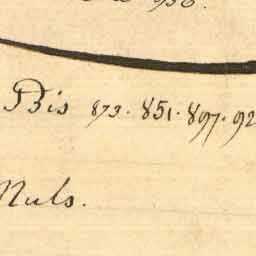 936.
Bis 873. 851. 897. 92
Nuls.